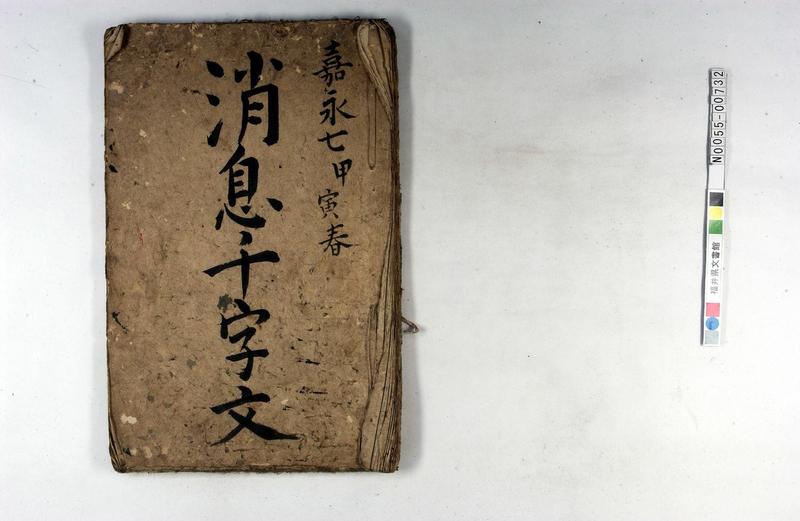 嘉永七甲寅春
消息千字文
N0055-00732
福井県文書館